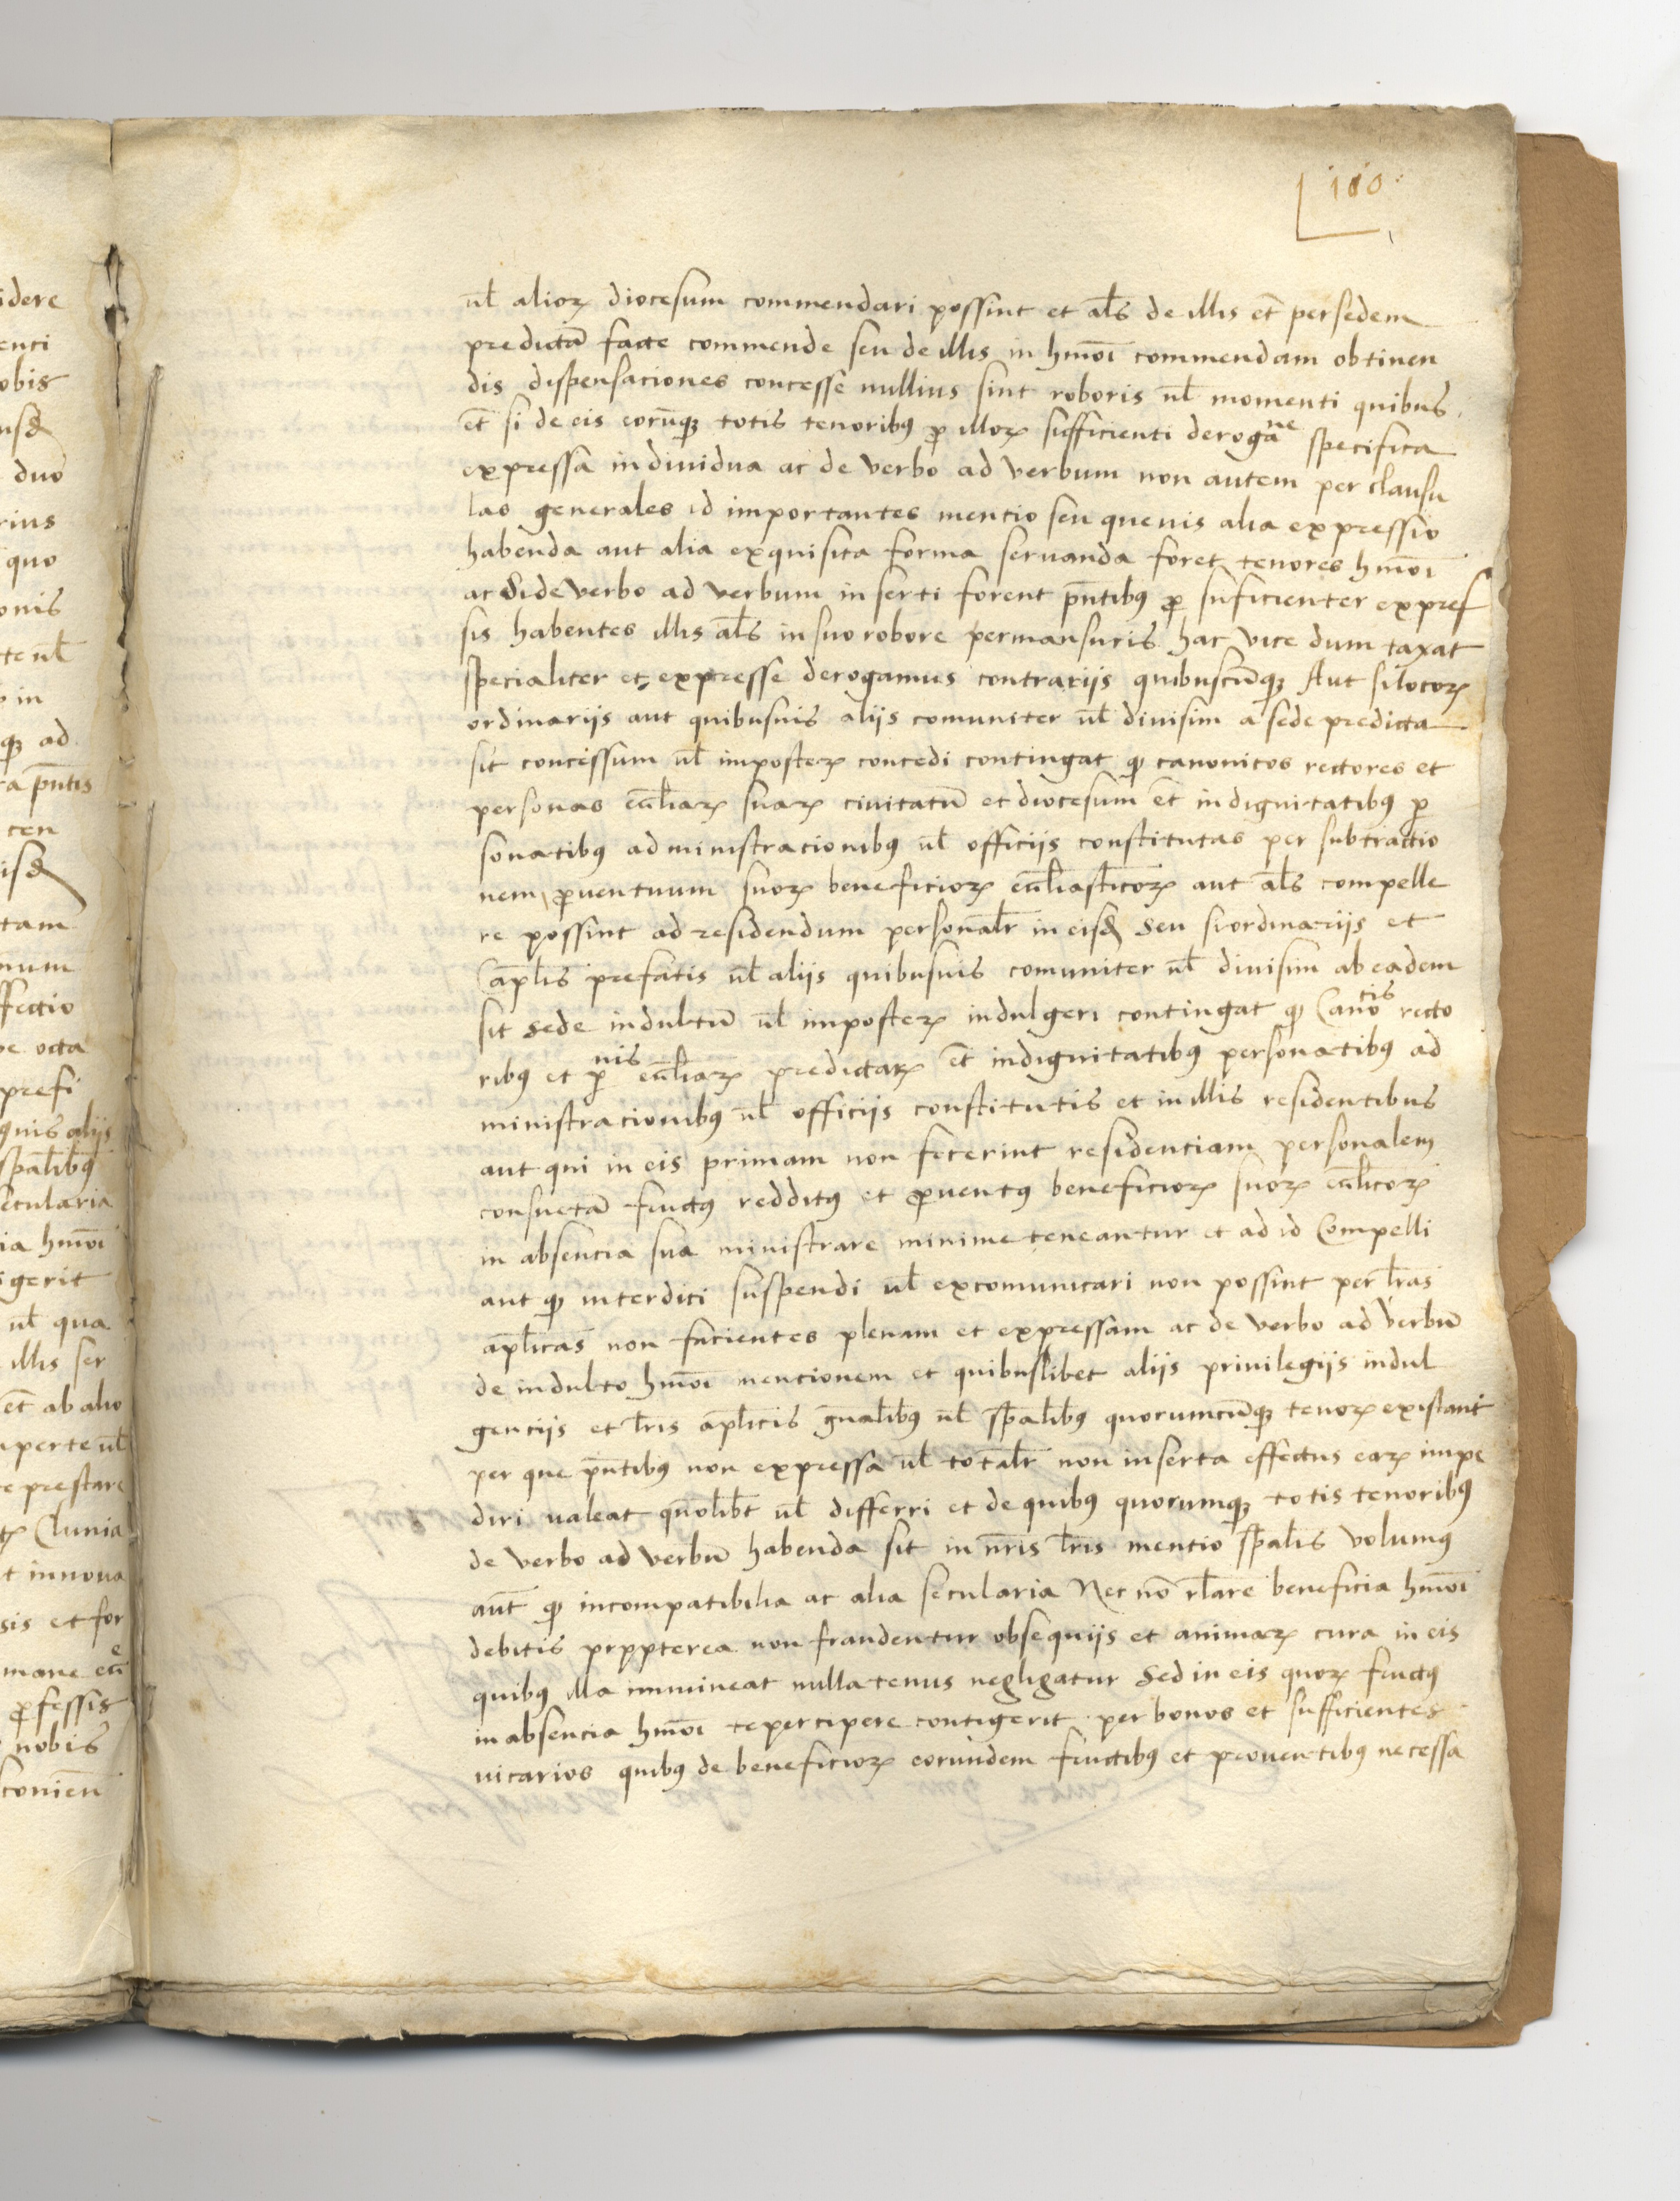 100
ul̄ alioꝝ diocesum commendari possint et al̄s de illis et̄ per sedem
predictā facte commende seu de illis in hmōi commendam obtinen
dis dispensaciones concesse nullius sint roboris ul̄ momenti quibus
et̄ si de eis eorūqꝫ totis tenoribꝰ ꝓ illoꝝ sufficienti derogāne specifica
expressa individua ac de verbo ad verbum non autem per clausu
las generales id importantes mentio seu quevis alia expressio
habenda aut alia exquisita forma servanda foret tenores hmōi
ac si de verbo ad verbum inserti forent pn̄tibꝰ ꝓ suficienter expres
sis habentes illis al̄s in suo robore permansuris hac vice dum taxat
specialiter et expresse derogamus contrariis quibuscūqꝫ Aut si locoꝝ
ordinariis aut quibusvis aliis comuniter ul̄ divisim a sede predicta
sit concessum ul̄ imposteꝝ concedi contingat ꝙ canonicos rectores et
personas eccl̄iaꝝ suaꝝ civitatū et diocesum et̄ in dignitatibꝰ ꝑ
sonatibꝰ administracionibꝰ ul̄ officiis constitutas per subtractio
nem ꝓventuum suoꝝ beneficioꝝ eccl̄iasticoꝝ aut al̄s compelle
re possint ad residendum personal̄r in eisd̄ seu si ordinariis et
Capl̄is prefatis ul̄ aliis quibusvis comuniter ul̄ divisim ab eadem
sit sede indultū ul̄ imposteꝝ indulgeri contingat ꝙ Canōtis recto
ribꝰ et ꝑnis eccl̄iaꝝ predictaꝝ et̄ in dignitatibꝰ personatibꝰ ad
ministracionibꝰ ul̄ officiis constitutis et in illis residentibus
aut qui in eis primam non fecerint residentiam personalem
consuetā fructꝰ redditꝰ et ꝓventꝰ beneficioꝝ suoꝝ eccl̄icoꝝ
in absencia sua ministrare minime teneantur et ad id Compelli
aut ꝙ interdici suspendi ul̄ excomunicari non possint per l̄ras
apl̄icas non facientes plenam et expressam ac de verbo ad verbū
de indulto hmōi mencionem et quibuslibet aliis privilegiis indul
genciis et l̄ris apl̄icis gn̄alibꝰ ul̄ sp̄alibꝰ quorumcūqꝫ tenoꝝ existant
per que pn̄tibꝰ non expressa ul̄ total̄r non inserta effectus eaꝝ impe
diri valeat quōlibt ul̄ differri et de quibꝰ quorumqꝫ totis tenoribꝰ
de verbo ad verbū habenda sit in nr̄is l̄ris mentio sp̄alis volumꝰ
aut̄ ꝙ incompatibilia ac alia secularia Nec nō rl̄are beneficia hmōi
debitis propterea non fraudentur obsequiis et animaꝝ cura in eis
quibꝰ illa immineat nullatenus negligatur Sed in eis quoꝝ fructꝰ
in absencia hmōi te percipere contigerit per bonos et sufficientes
vicarios quibꝰ de beneficioꝝ eorundem fructibꝰ et proventibꝰ necessa